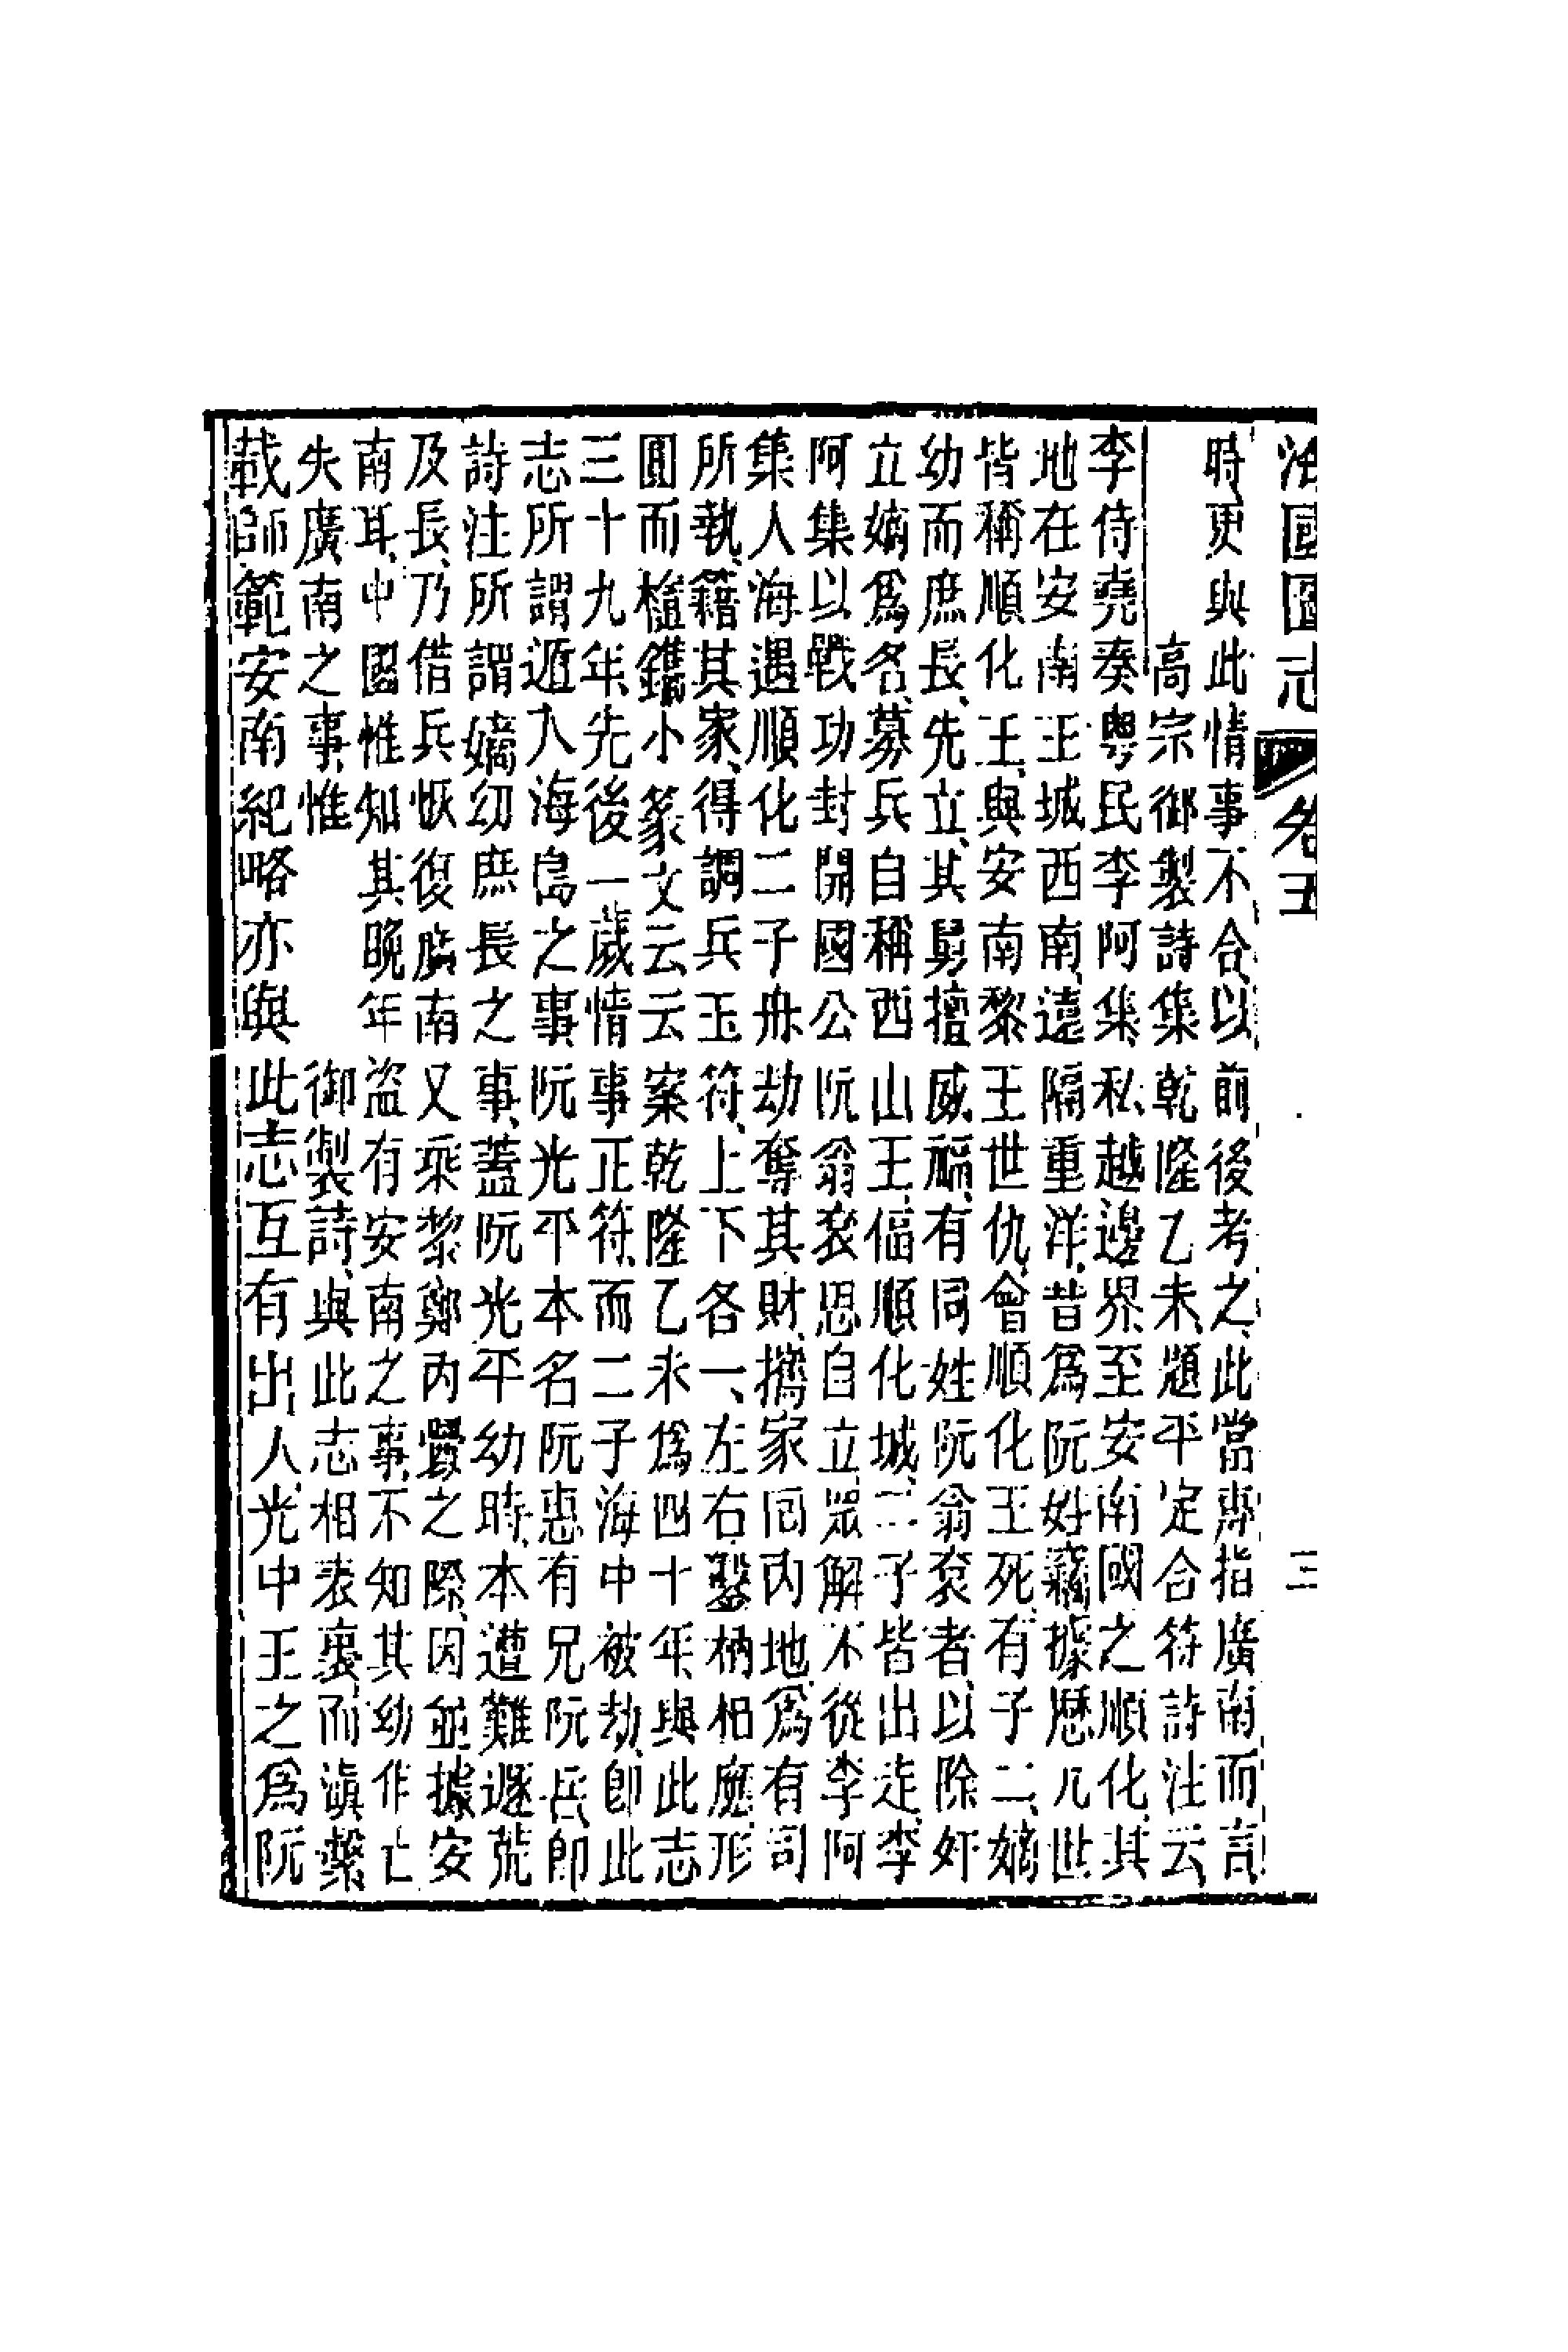 海國圖志 卷五 三
時更與此情事不合以前後考之此當專指廣南而言
高宗御製詩集乾隆乙未題平定合符詩注云
李侍堯奏粵民李阿集私越邊界至安南國之順化其
地在安南王城西南遠隔重洋昔爲阮姓竊據歷八世
皆稱順化王與安南黎王世仇會順化王死有子二嫡
幼而庶長先立其舅擅威福有同姓阮翁袞者以除奸
立嫡爲名募兵自稱西山王偪順化城二子皆出走李
阿集以戰功封開國公阮翁袞思自立眾解不從李阿
集人海遇順化二子舟劫奪其財攜家回內地爲有司
所執籍其家得調兵玉符上下各一左右鑿柄相應形
圓而橢鐫小篆文云云案乾隆乙未爲四十年與此志
三十九年先後一歲情事正符而二子海中被劫卽此
志所謂遁入海島之事阮光平本名阮惠有兄阮岳卽
詩注所謂嫡幼庶長之事蓋阮光平幼時本遭難遯荒
及長乃借兵恢復廣南又乘黎鄭內釁之際因並據安
南耳中國惟知其晚年盜有安南之事不知其幼年亡
失廣南之事惟 御製詩與此志相表裏而滇繫
載師範安南紀略亦與此志互有出人光中王之爲阮